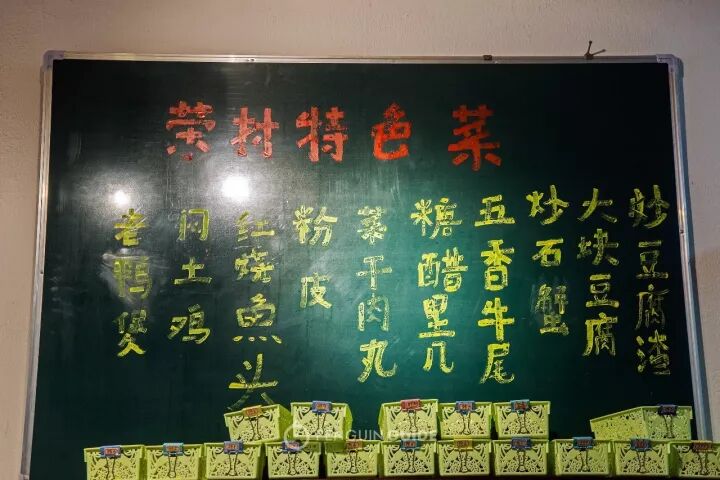 荣村特色菜
炒豆腐渣
大块豆腐
炒石蟹
五香牛尾
糖醋里几
菜干肉丸
粉皮
红烧鱼头
闷土鸡
老鸭煲
PENGUIN GUIDE